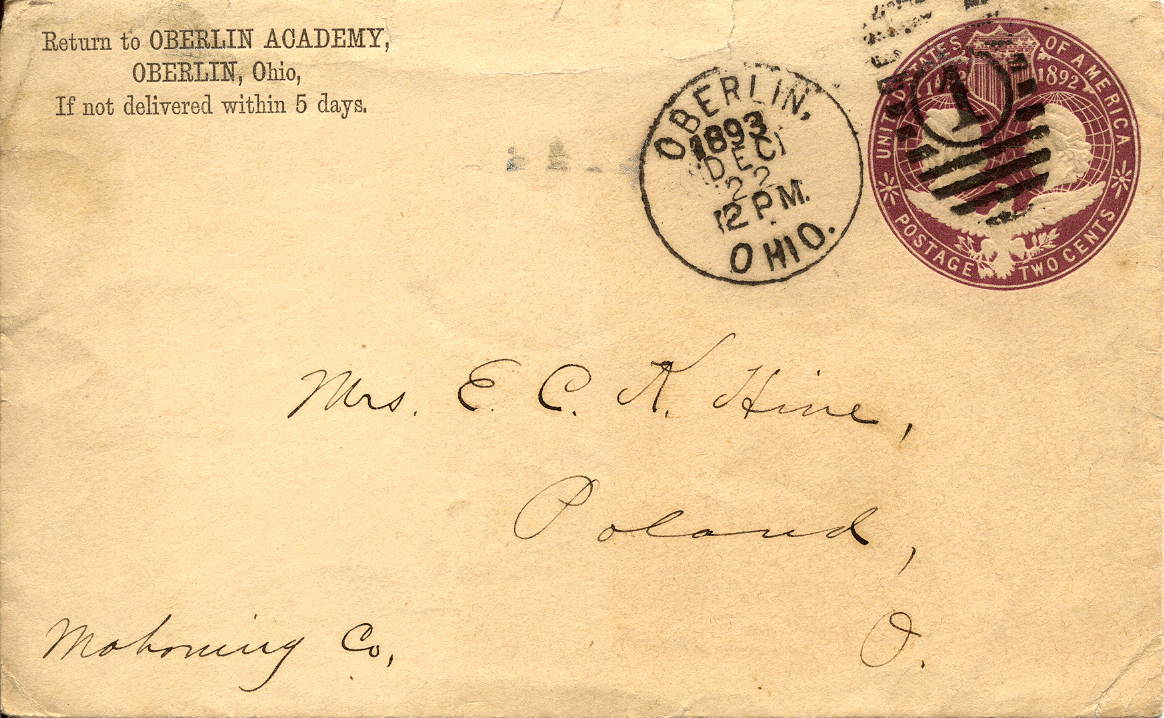 Return to OBERLIN ACADEMY,
OBERLIN, Ohio,
If not delivered within 5 days.
OBERLIN,
1893
DEC
22
12 PM.
OHIO.
UNITED STATES OF AMERICA
1492 1892
1
POSTAGE TWO CENTS
Mrs. E. C. K. Hine,
Poland,
O.
Mahoning Co,